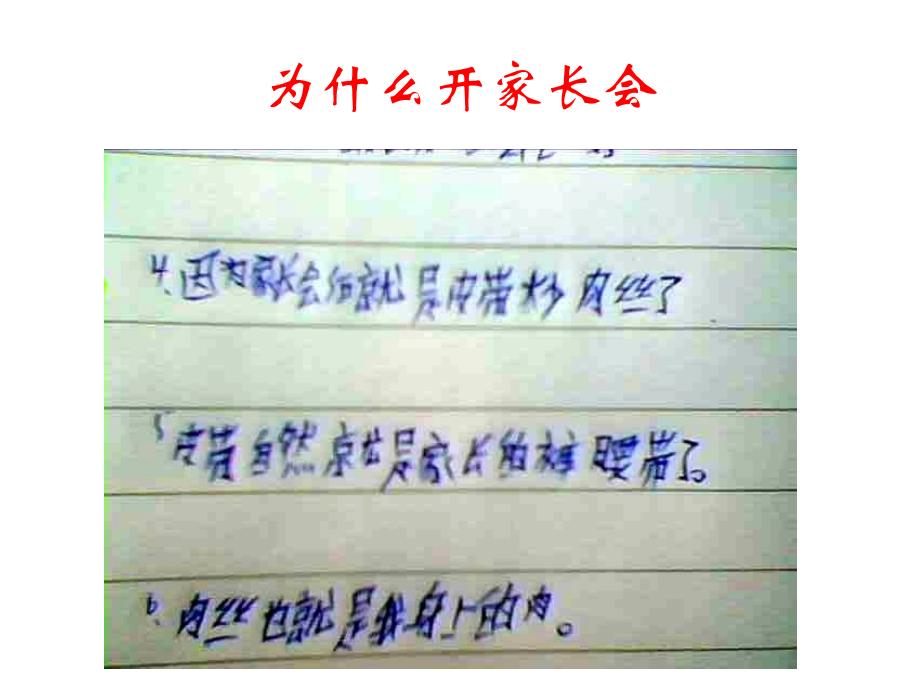 为什么开家长会
4.因为家长会后就是皮带炒肉丝了
5 皮带自然就是家长的裤腰带了。
6.肉丝也就是我身上的肉。